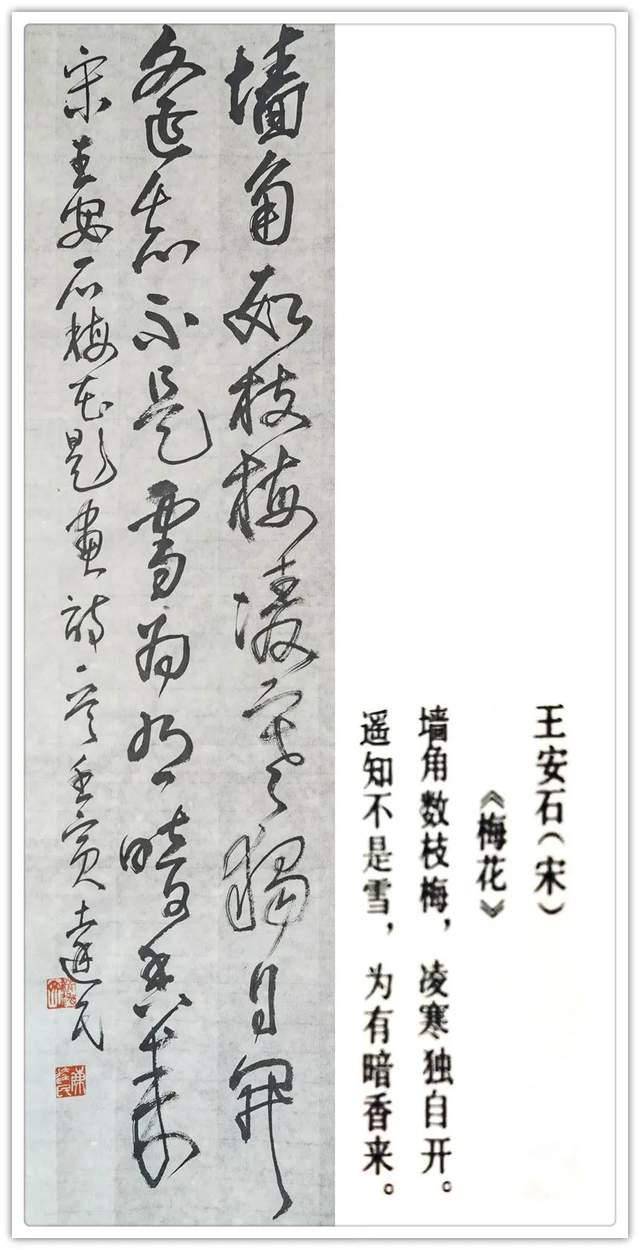 墙角数枝梅凌寒獨自開
遙知不是雪為有暗香來
宋王安石梅花題畫詩一首壬寅達民
王安石（宋）
《梅花》
墙角数枝梅，凌寒独自开。
遥知不是雪，为有暗香来。